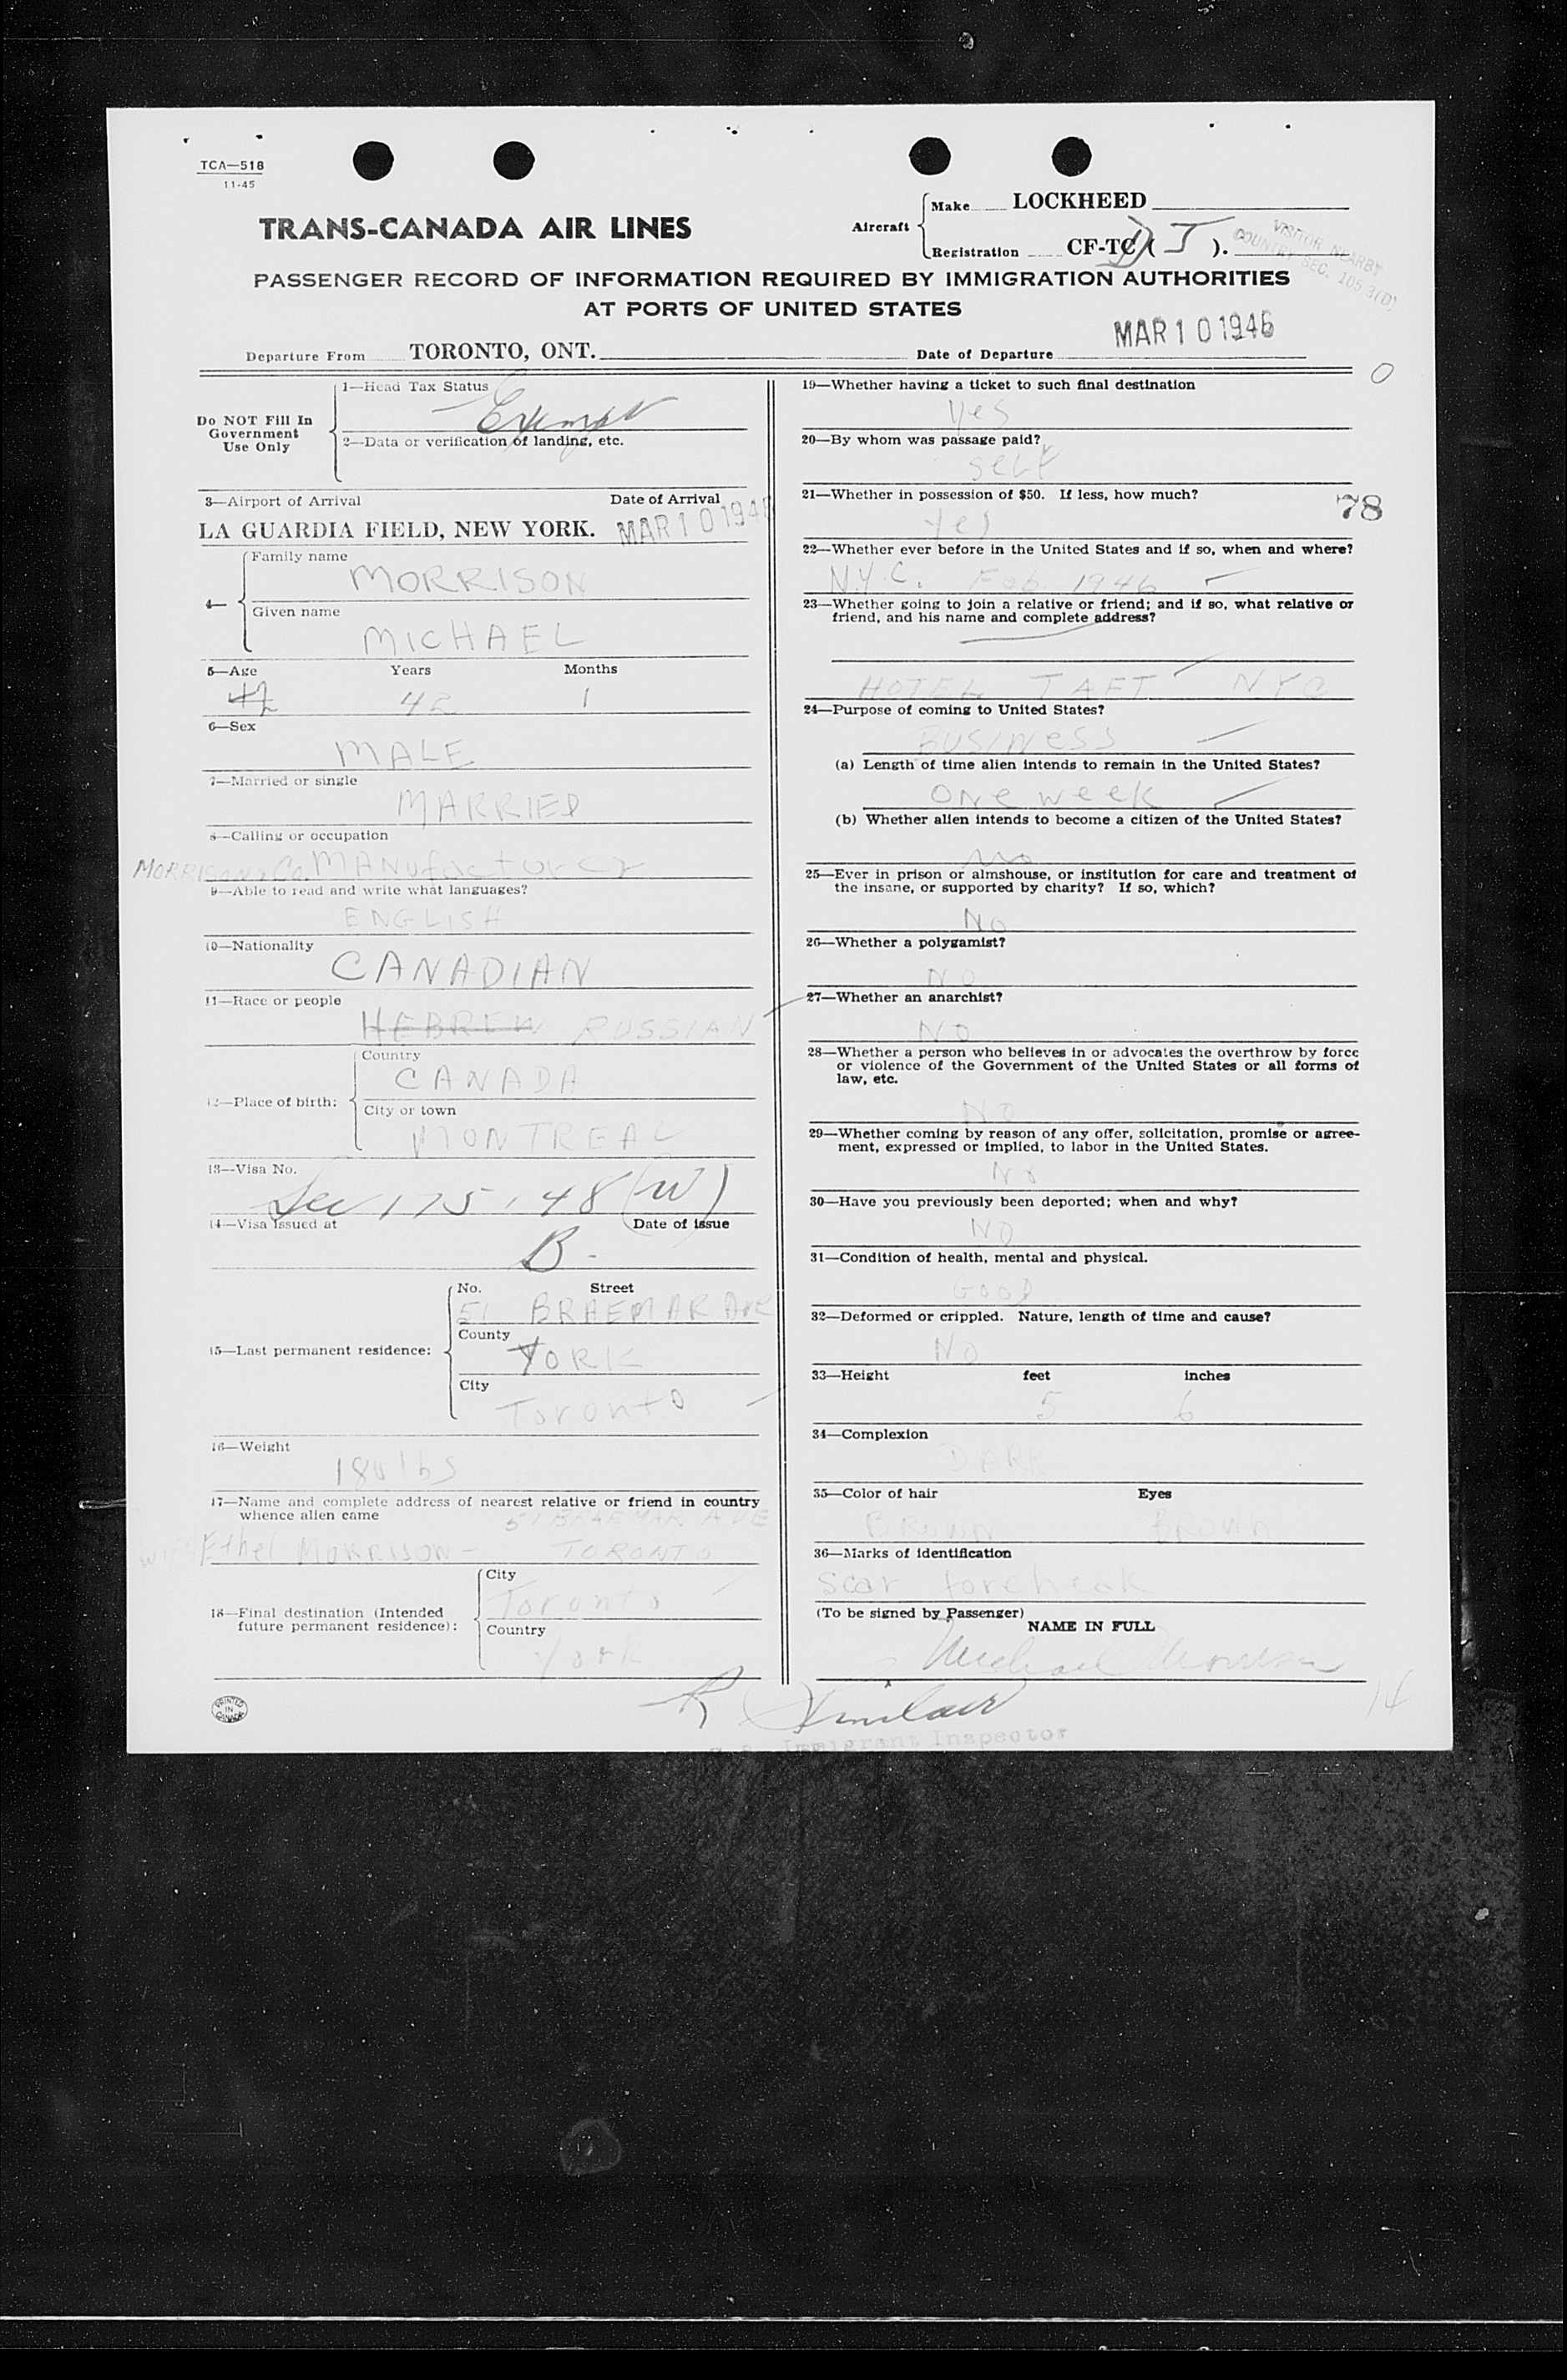 TCA—518
11-45
TRANS-CANADA AIR LINES
Aircraft
Make LOCKHEED
Registration CF-TC ( J ).
VISITOR NEARBY
COUNTRY SEC. 105.3(D)
PASSENGER RECORD OF INFORMATION REQUIRED BY IMMIGRATION AUTHORITIES
AT PORTS OF UNITED STATES
Departure From TORONTO, ONT.
Date of Departure MAR 10 1946
Do NOT Fill In
Government
Use Only
1—Head Tax Status
Exempt
2—Data or verification of landing, etc.
3—Airport of Arrival Date of Arrival
LA GUARDIA FIELD, NEW YORK. MAR 10 1946
4—
Family name
MORRISON
Given name
MICHAEL
5—Age Years Months
42 42 1
6—Sex
MALE
7—Married or single
MARRIED
8—Calling or occupation
MORRISON & Co. MANufacturer
9—Able to read and write what languages?
ENGLISH
10—Nationality
CANADIAN
11—Race or people
HEBREW RUSSIAN
12—Place of birth:
Country
CANADA
City or town
MONTREAL
13—Visa No.
Sec 175.48 (W)
14—Visa Issued at Date of issue
B-
15—Last permanent residence:
No. Street
51 BRAEMAR AVE
County
YORK
City
Toronto
16—Weight
180 lbs
17—Name and complete address of nearest relative or friend in country
whence alien came
51 BRAEMAR AVE
wife Ethel MORRISON - TORONTO
18—Final destination (Intended
future permanent residence):
City
Toronto
Country
York
PRINTED
IN
CANADA
19—Whether having a ticket to such final destination
Yes
20—By whom was passage paid?
self
21—Whether in possession of $50. If less, how much?
78
Yes
22—Whether ever before in the United States and if so, when and where?
N.Y.C. Feb 1946
23—Whether going to join a relative or friend; and if so, what relative or
friend, and his name and complete address?
HOTEL TAFT NYC
24—Purpose of coming to United States?
BUSINESS
(a) Length of time alien intends to remain in the United States?
ONE week
(b) Whether alien intends to become a citizen of the United States?
No
25—Ever in prison or almshouse, or institution for care and treatment of
the insane, or supported by charity? If so, which?
No
26—Whether a polygamist?
NO
27—Whether an anarchist?
NO
28—Whether a person who believes in or advocates the overthrow by force
or violence of the Government of the United States or all forms of
law, etc.
NO
29—Whether coming by reason of any offer, solicitation, promise or agree-
ment, expressed or implied, to labor in the United States.
No
30—Have you previously been deported; when and why?
NO
31—Condition of health, mental and physical.
GOOD
32—Deformed or crippled. Nature, length of time and cause?
No
33—Height feet inches
5 6
34—Complexion
DARK
35—Color of hair Eyes
BROWN BROWN
36—Marks of identification
Scar forehead
(To be signed by Passenger)
NAME IN FULL
Michael Morrison
14
R Sinclair
Immigrant Inspector